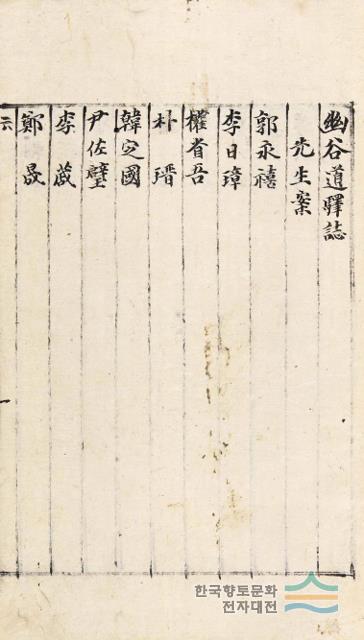 幽谷道驛誌
先生案
郭永禧
李日璋
權省吾
朴瑨
韓定國
尹佐璧
李蕆
鄭晟
한국향토문화
전자대전